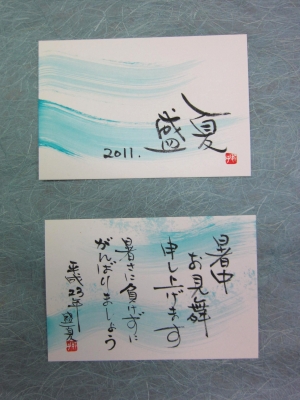 盛夏
2011.
暑中
お見舞
申し上げます
暑さに負けずに
がんばりましょう
平成23年盛夏